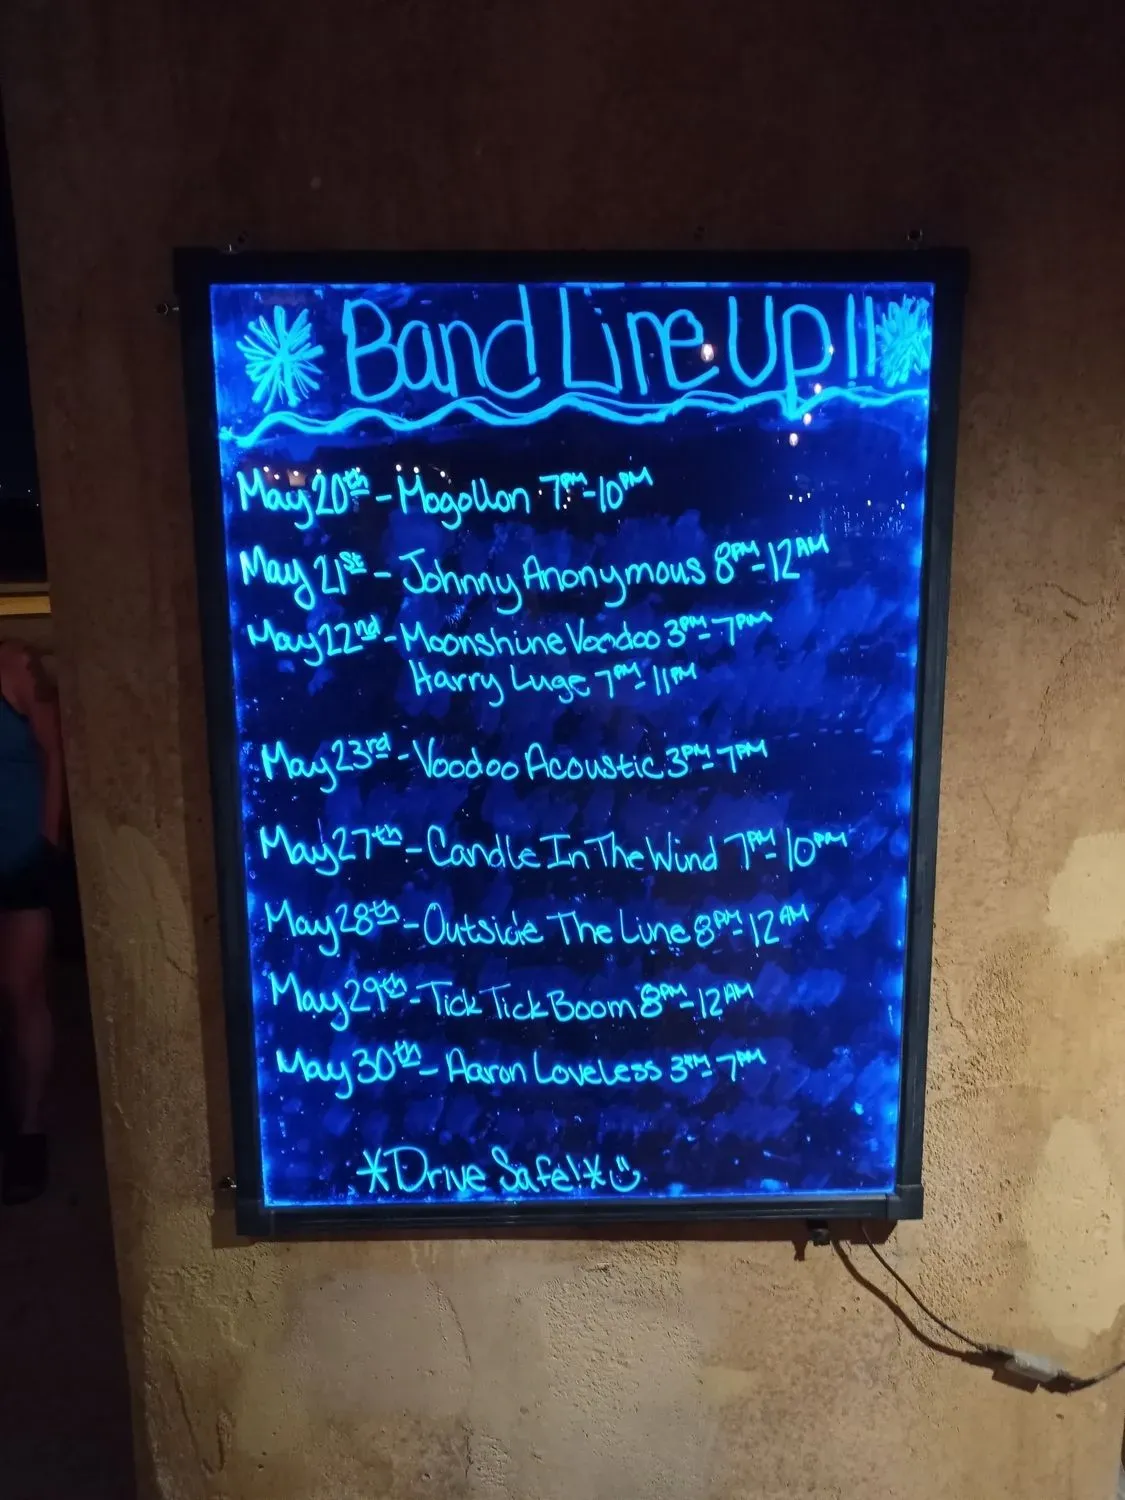 Band Line Up!!
May 20th - Mogollon 7PM-10PM
May 21st - Johnny Anonymous 8PM-12AM
May 22nd - Moonshine Voodoo 3PM-7PM
Harry Luge 7PM-11PM
May 23rd - Voodoo Acoustic 3PM-7PM
May 27th - Candle In The Wind 7PM-10PM
May 28th - Outside The Line 8PM-12AM
May 29th - Tick Tick Boom 8PM-12AM
May 30th - Aaron Loveless 3PM-7PM
*Drive Safe!*